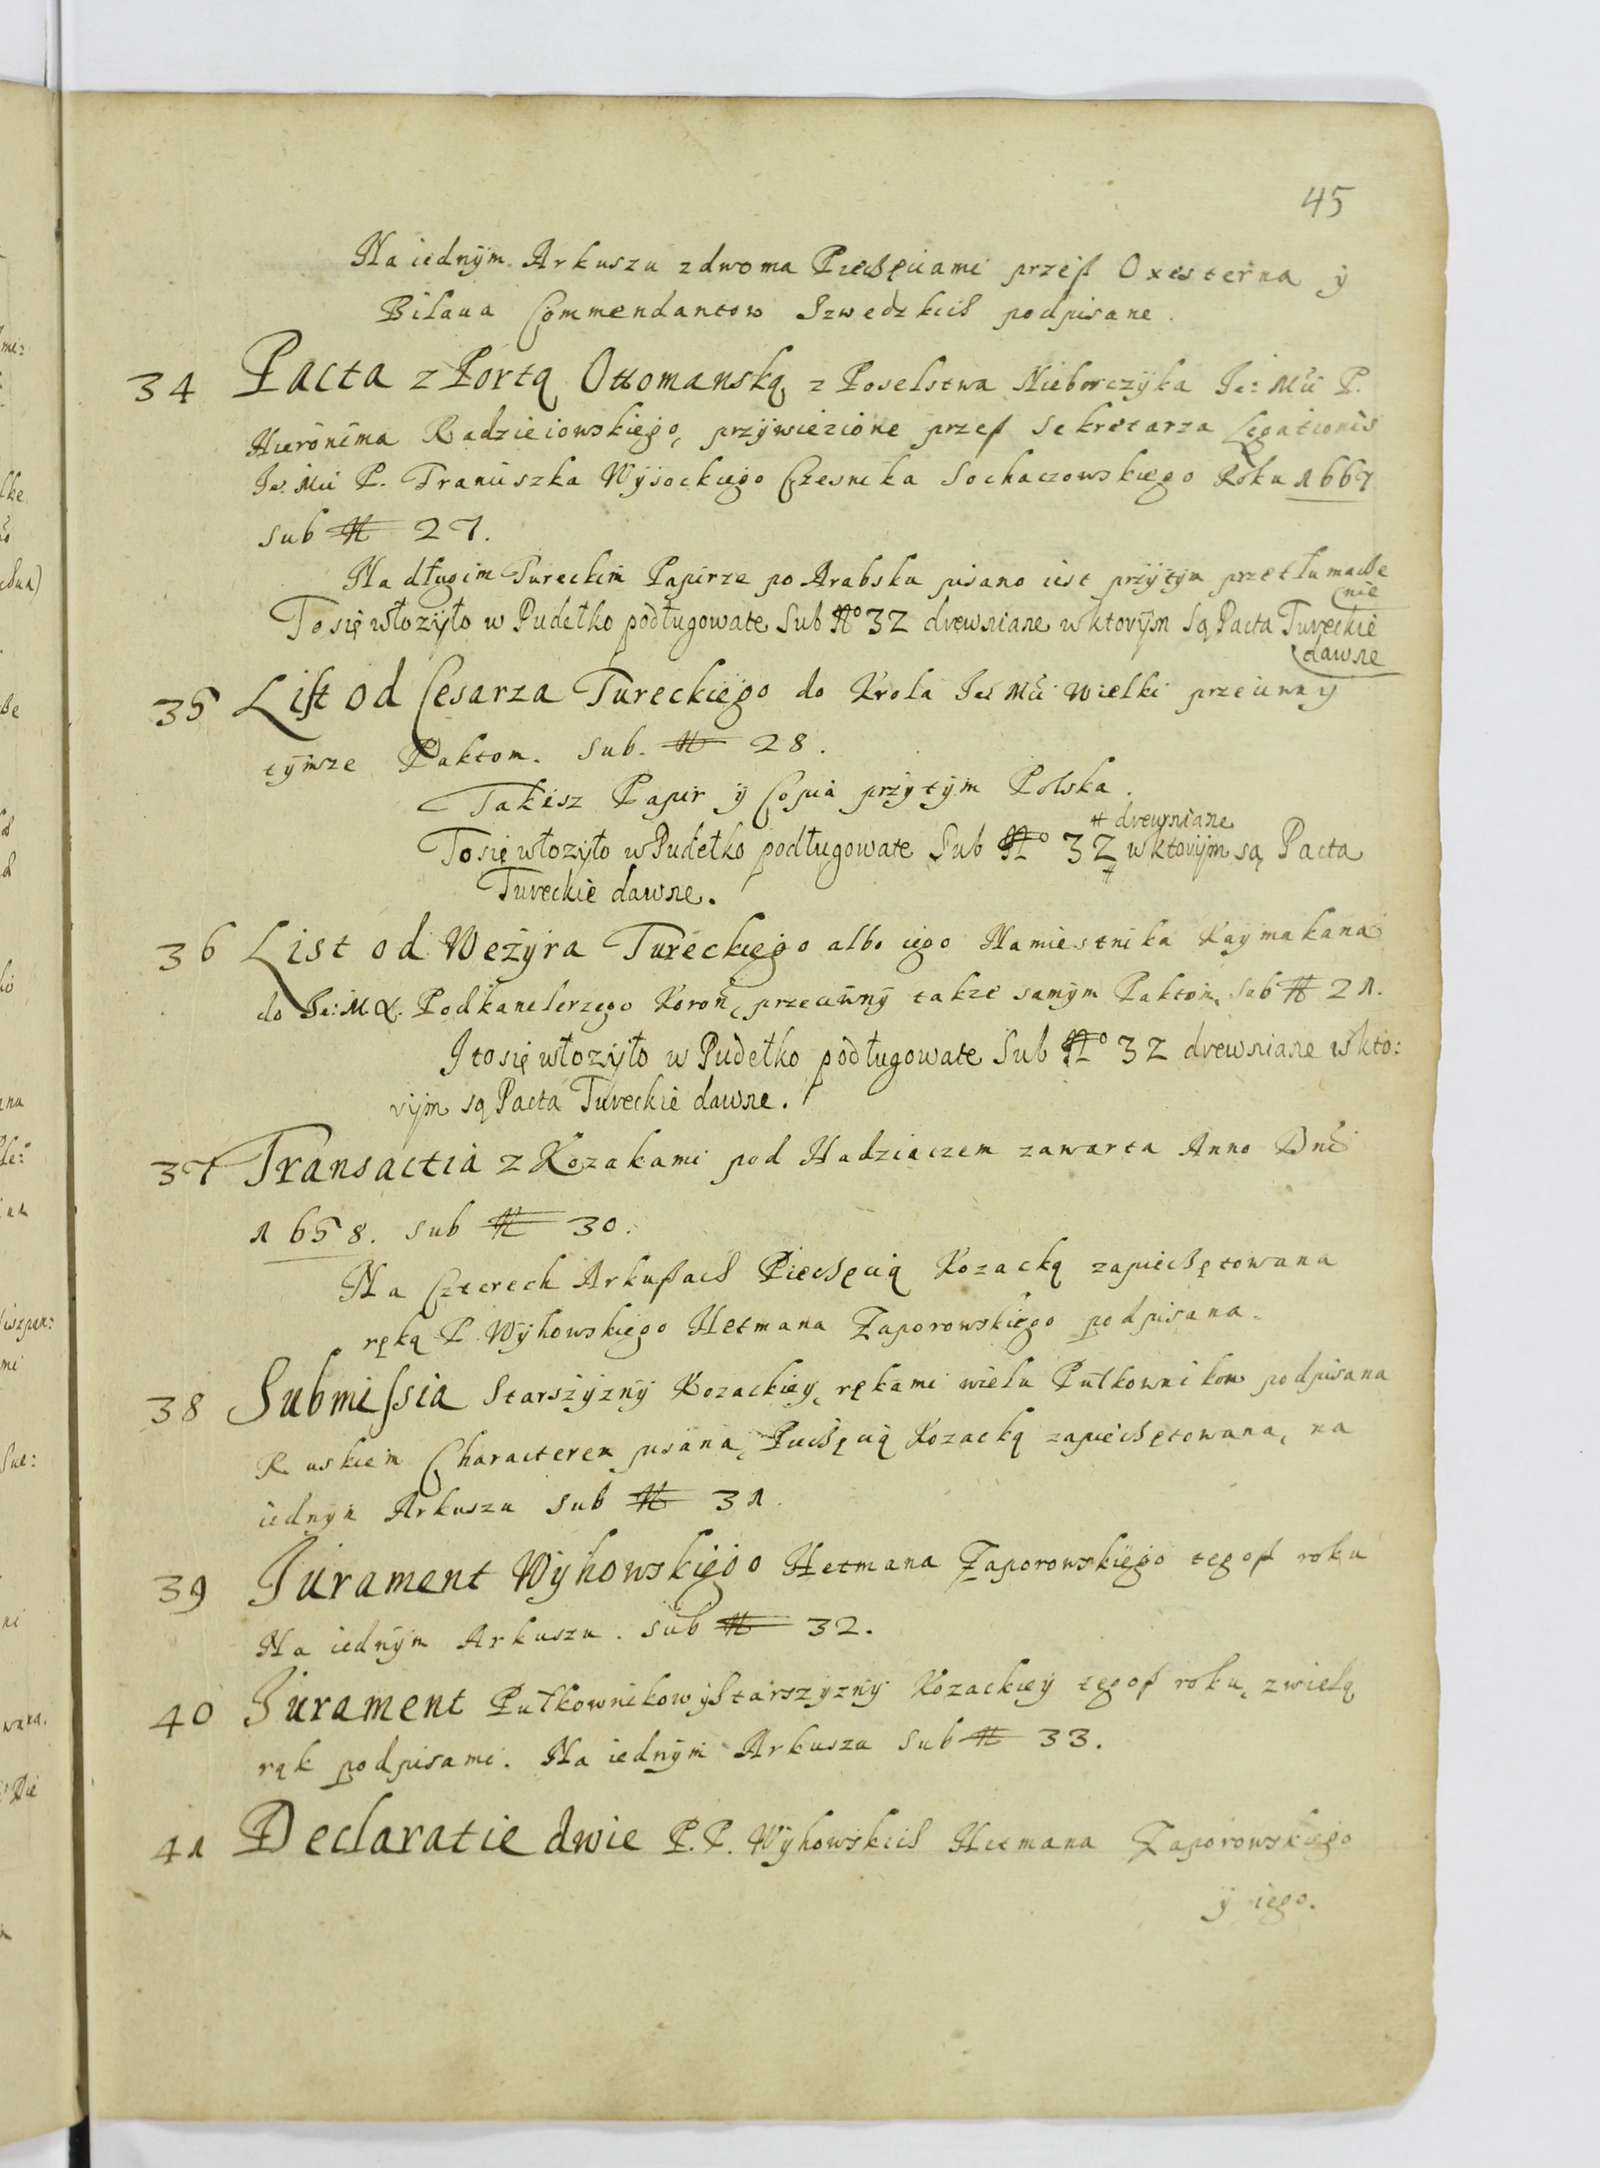 45
Na iednÿm Arkuszu z dwoma Pieczęciami przeſz Oxesterna ÿ
Bilaua Commendantow Szwedzkich podpisane.
34 Pacta z Portą Ottomanską z Poselstwa Nieborczÿka Je: Mći P.
Hieronima Radzieiowskiego, przÿwiezione przeſz Sekretarza Legationis
Je: Mći P. Franciszka Wÿsockiego Czesnika Sochaczowskiego Roku 1667
Sub N 27.
Na długim Tureckim Papirze po Arabsku pisano iest przÿtÿm przetłumacze
nie
To się włozÿło w Pudełko podługowate Sub No 32 drewniane w ktorÿm są Pacta Tureckie
dawne
35 List od Cesarza Tureckiego do Krola Je: Mći Wielki przeciwnÿ
tÿmze Paktom. Sub. N 28.
Takisz Papir ÿ Copia przÿtÿm Polska.
# drewniane
To się włozÿło w Pudełko podługowate Sub No 32 # w ktorÿm są Pacta
Tureckie dawne.
36 List od Wezÿra Tureckiego albo iego Namiestnika Kaÿmakana
do Je: M. X. Podkanclerzego Koron, przeciwnÿ takze samÿm Paktom, Sub N 21.
I to się włozÿło w Pudełko podługowate Sub No 32 drewniane w kto:
rÿm są Pacta Tureckie dawne.
37 Transactia z Kozakami pod Hadziaczem zawarta Anno Dni
1658. Sub N 30.
Na Czterech Arkuſzach Pieczęcią Kozacką zapieczętowana
ręką P. Wÿhowskiego Hetmana Zaporowskiego podpisana.
38 Submiſsia Starszÿznÿ Kozackieÿ, rękami wielu Pułkownikow podpisana
Ruskiem Characterem pisana, Pieczęcią Kozacką zapieczętowana, na
iednÿm Arkuszu Sub N 31.
39 Jurament Wÿhowskiego Hetmana Zaporowskiego tegoſz roku
Na iednÿm Arkuszu. Sub N 32.
40 Jurament Pułkownikow ÿ Starszÿznÿ Kozackieÿ tegoſz roku, z wielą
rąk podpisami. Na iednÿm Arkuszu Sub N 33.
41 Declaratie dwie P. P. Wÿhowskich Hetmana Zaporowskiego
ÿ iego.